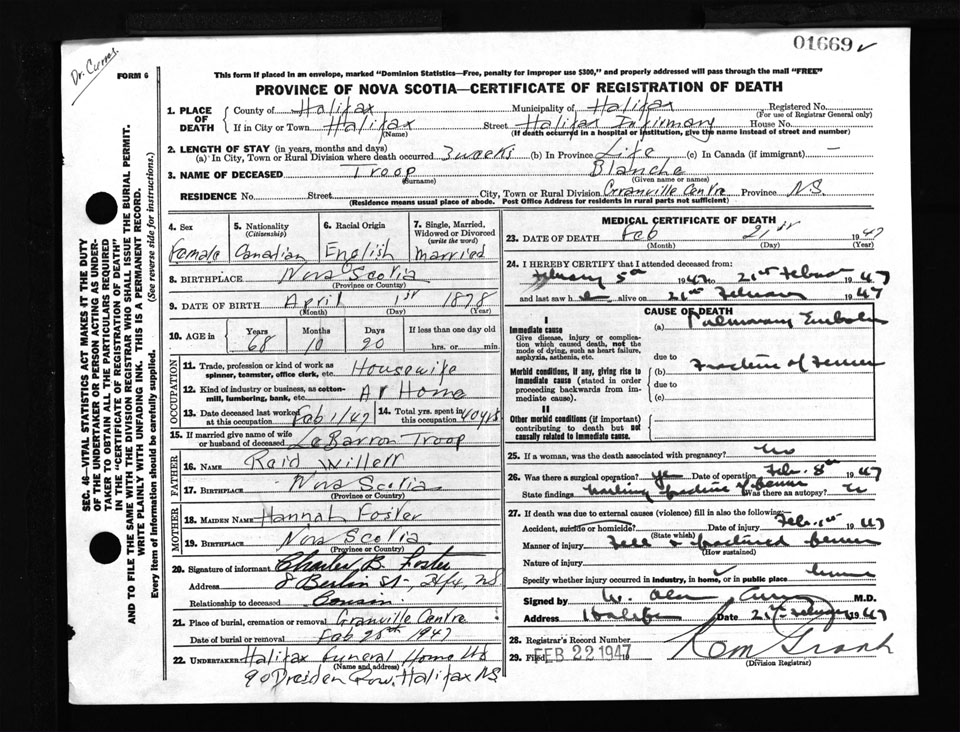 01669
Dr. Curry.
FORM 6
This form if placed in an envelope, marked "Dominion Statistics—Free, penalty for improper use $300," and properly addressed will pass through the mail "FREE"
PROVINCE OF NOVA SCOTIA—CERTIFICATE OF REGISTRATION OF DEATH
SEC. 46—VITAL STATISTICS ACT MAKES IT THE DUTY
OF THE UNDERTAKER OR PERSON ACTING AS UNDER-
TAKER TO OBTAIN ALL THE PARTICULARS REQUIRED
IN THE "CERTIFICATE OF REGISTRATION OF DEATH"
AND TO FILE THE SAME WITH THE DIVISION REGISTRAR WHO SHALL ISSUE THE BURIAL PERMIT.
WRITE PLAINLY WITH UNFADING INK. THIS IS A PERMANENT RECORD.
Every item of information should be carefully supplied. (See reverse side for instructions.)
1. PLACE OF DEATH
County of Halifax Municipality of Halifax Registered No.
(For use of Registrar General only)
If in City or Town Halifax Street Halifax Infirmary House No.
(Name) (If death occurred in a hospital or institution, give the name instead of street and number)
2. LENGTH OF STAY (in years, months and days)
(a) In City, Town or Rural Division where death occurred 3 weeks (b) In Province Life (c) In Canada (if immigrant) —
3. NAME OF DECEASED Troop Blanche
(Surname) (Given name or names)
RESIDENCE No. Street City, Town or Rural Division Granville Centre Province NS.
(Residence means usual place of abode. Post Office Address for residents in rural parts not sufficient)
4. Sex 5. Nationality (Citizenship) 6. Racial Origin 7. Single, Married, Widowed or Divorced (write the word)
Female Canadian English Married
8. BIRTHPLACE Nova Scotia
(Province or Country)
9. DATE OF BIRTH April 1st 1878
(Month) (Day) (Year)
10. AGE in Years Months Days If less than one day old
68 10 20 hrs. or min.
OCCUPATION
11. Trade, profession or kind of work as spinner, teamster, office clerk, etc. Housewife
12. Kind of industry or business, as cotton-mill, lumbering, bank, etc. At Home
13. Date deceased last worked at this occupation Feb 1/47 14. Total yrs. spent in 40 yrs
15. If married give name of wife or husband of deceased LeBarron Troop
FATHER
16. NAME Reid Willett
17. BIRTHPLACE Nova Scotia
(Province or Country)
MOTHER
18. MAIDEN NAME Hannah Foster
19. BIRTHPLACE Nova Scotia
(Province or Country)
20. Signature of informant Charles B. Foster
Address 8 Berlin St., Hfx, NS
Relationship to deceased Cousin.
21. Place of burial, cremation or removal Granville Centre
Date of burial or removal Feb 25th 1947
22. UNDERTAKER Halifax Funeral Home Ltd
(Name and address)
90 Dresden Row, Halifax NS
MEDICAL CERTIFICATE OF DEATH
23. DATE OF DEATH Feb 21st 1947
(Month) (Day) (Year)
24. I HEREBY CERTIFY that I attended deceased from:
February 5th 1947 to 21st February 1947
and last saw her alive on 21st February 1947
CAUSE OF DEATH
I
Immediate cause
Give disease, injury or complication which caused death, not the mode of dying, such as heart failure, asphyxia, asthenia, etc.
(a) Pulmonary Embolus
due to
Morbid conditions, if any, giving rise to immediate cause (stated in order proceeding backwards from immediate cause).
(b) Fracture of Femur
due to
(c)
II
Other morbid conditions (if important) contributing to death but not causally related to immediate cause.
25. If a woman, was the death associated with pregnancy? No
26. Was there a surgical operation? yes Date of operation Feb. 8th 1947
State findings nailing fracture of femur Was there an autopsy? No
27. If death was due to external causes (violence) fill in also the following:—
Accident, suicide or homicide? Date of injury Feb. 1st 1947
(State which)
Manner of injury Fell & fractured femur
(How sustained)
Nature of injury
Specify whether injury occurred in industry, in home, or in public place home
Signed by W. Alan Curry M.D.
Address Halifax Date 21st February 1947
28. Registrar's Record Number
29. Filed FEB 22 1947
(Division Registrar)